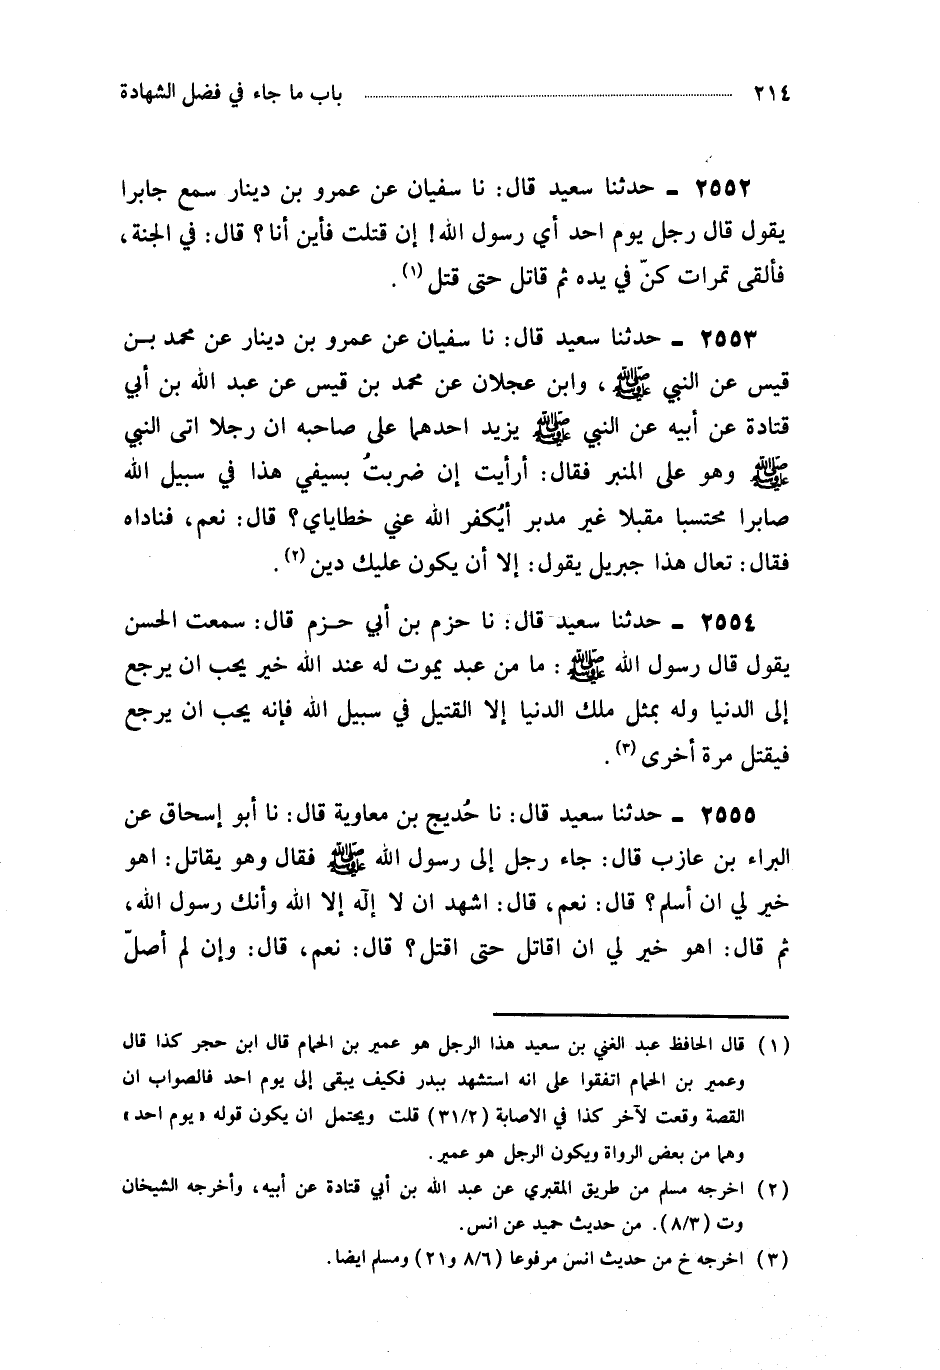 ٢١٤ باب ما جاء في فضل الشهادة
٢٥٥٢ ـ حدثنا سعيد قال: نا سفيان عن عمرو بن دينار سمع جابرا
يقول قال رجل يوم احد أي رسول الله! إن قتلت فأين أنا؟ قال: في الجنة،
فألقى تمرات كنّ في يده ثم قاتل حتى قتل (١) .
٢٥٥٣ ـ حدثنا سعيد قال: نا سفيان عن عمرو بن دينار عن محمد بـن
قيس عن النبي ﷺ ، وابن عجلان عن محمد بن قيس عن عبد الله بن أبي
قتادة عن أبيه عن النبي ﷺ يزيد احدهما على صاحبه ان رجلا اتى النبي
ﷺ وهو على المنبر فقال: أرأيت إن ضربتُ بسيفي هذا في سبيل الله
صابرا محتسبا مقبلا غير مدبر أيُكفر الله عني خطاياي؟ قال: نعم، فناداه
فقال: تعال هذا جبريل يقول: إلا أن يكون عليك دين (٢) .
٢٥٥٤ ـ حدثنا سعيد قال: نا حزم بن أبي حـزم قال: سمعت الحسن
يقول قال رسول الله ﷺ : ما من عبد يموت له عند الله خير يحب ان يرجع
إلى الدنيا وله بمثل ملك الدنيا إلا القتيل في سبيل الله فإنه يحب ان يرجع
فيقتل مرة أخرى (٣) .
٢٥٥٥ ـ حدثنا سعيد قال: نا حُديج بن معاوية قال: نا أبو إسحاق عن
البراء بن عازب قال: جاء رجل إلى رسول الله ﷺ فقال وهو يقاتل: اهو
خير لي ان أسلم؟ قال: نعم، قال: اشهد ان لا إلٓه إلا الله وأنك رسول الله،
ثم قال: اهو خير لي ان اقاتل حتى اقتل؟ قال: نعم، قال: وإن لم أصلّ
(١) قال الحافظ عبد الغني بن سعيد هذا الرجل هو عمير بن الحمام قال ابن حجر كذا قال
وعمير بن الحمام اتفقوا على انه استشهد ببدر فكيف يبقى إلى يوم احد فالصواب ان
القصة وقعت لآخر كذا في الاصابة (٣١/٢) قلت ويحتمل ان يكون قوله «يوم احد»
وهما من بعض الرواة ويكون الرجل هو عمير.
(٢) اخرجه مسلم من طريق المقبري عن عبد الله بن أبي قتادة عن أبيه، وأخرجه الشيخان
وت (٨/٣). من حديث حميد عن انس.
(٣) اخرجه خ من حديث انس مرفوعا (٨/٦ و٢١) ومسلم ايضا.